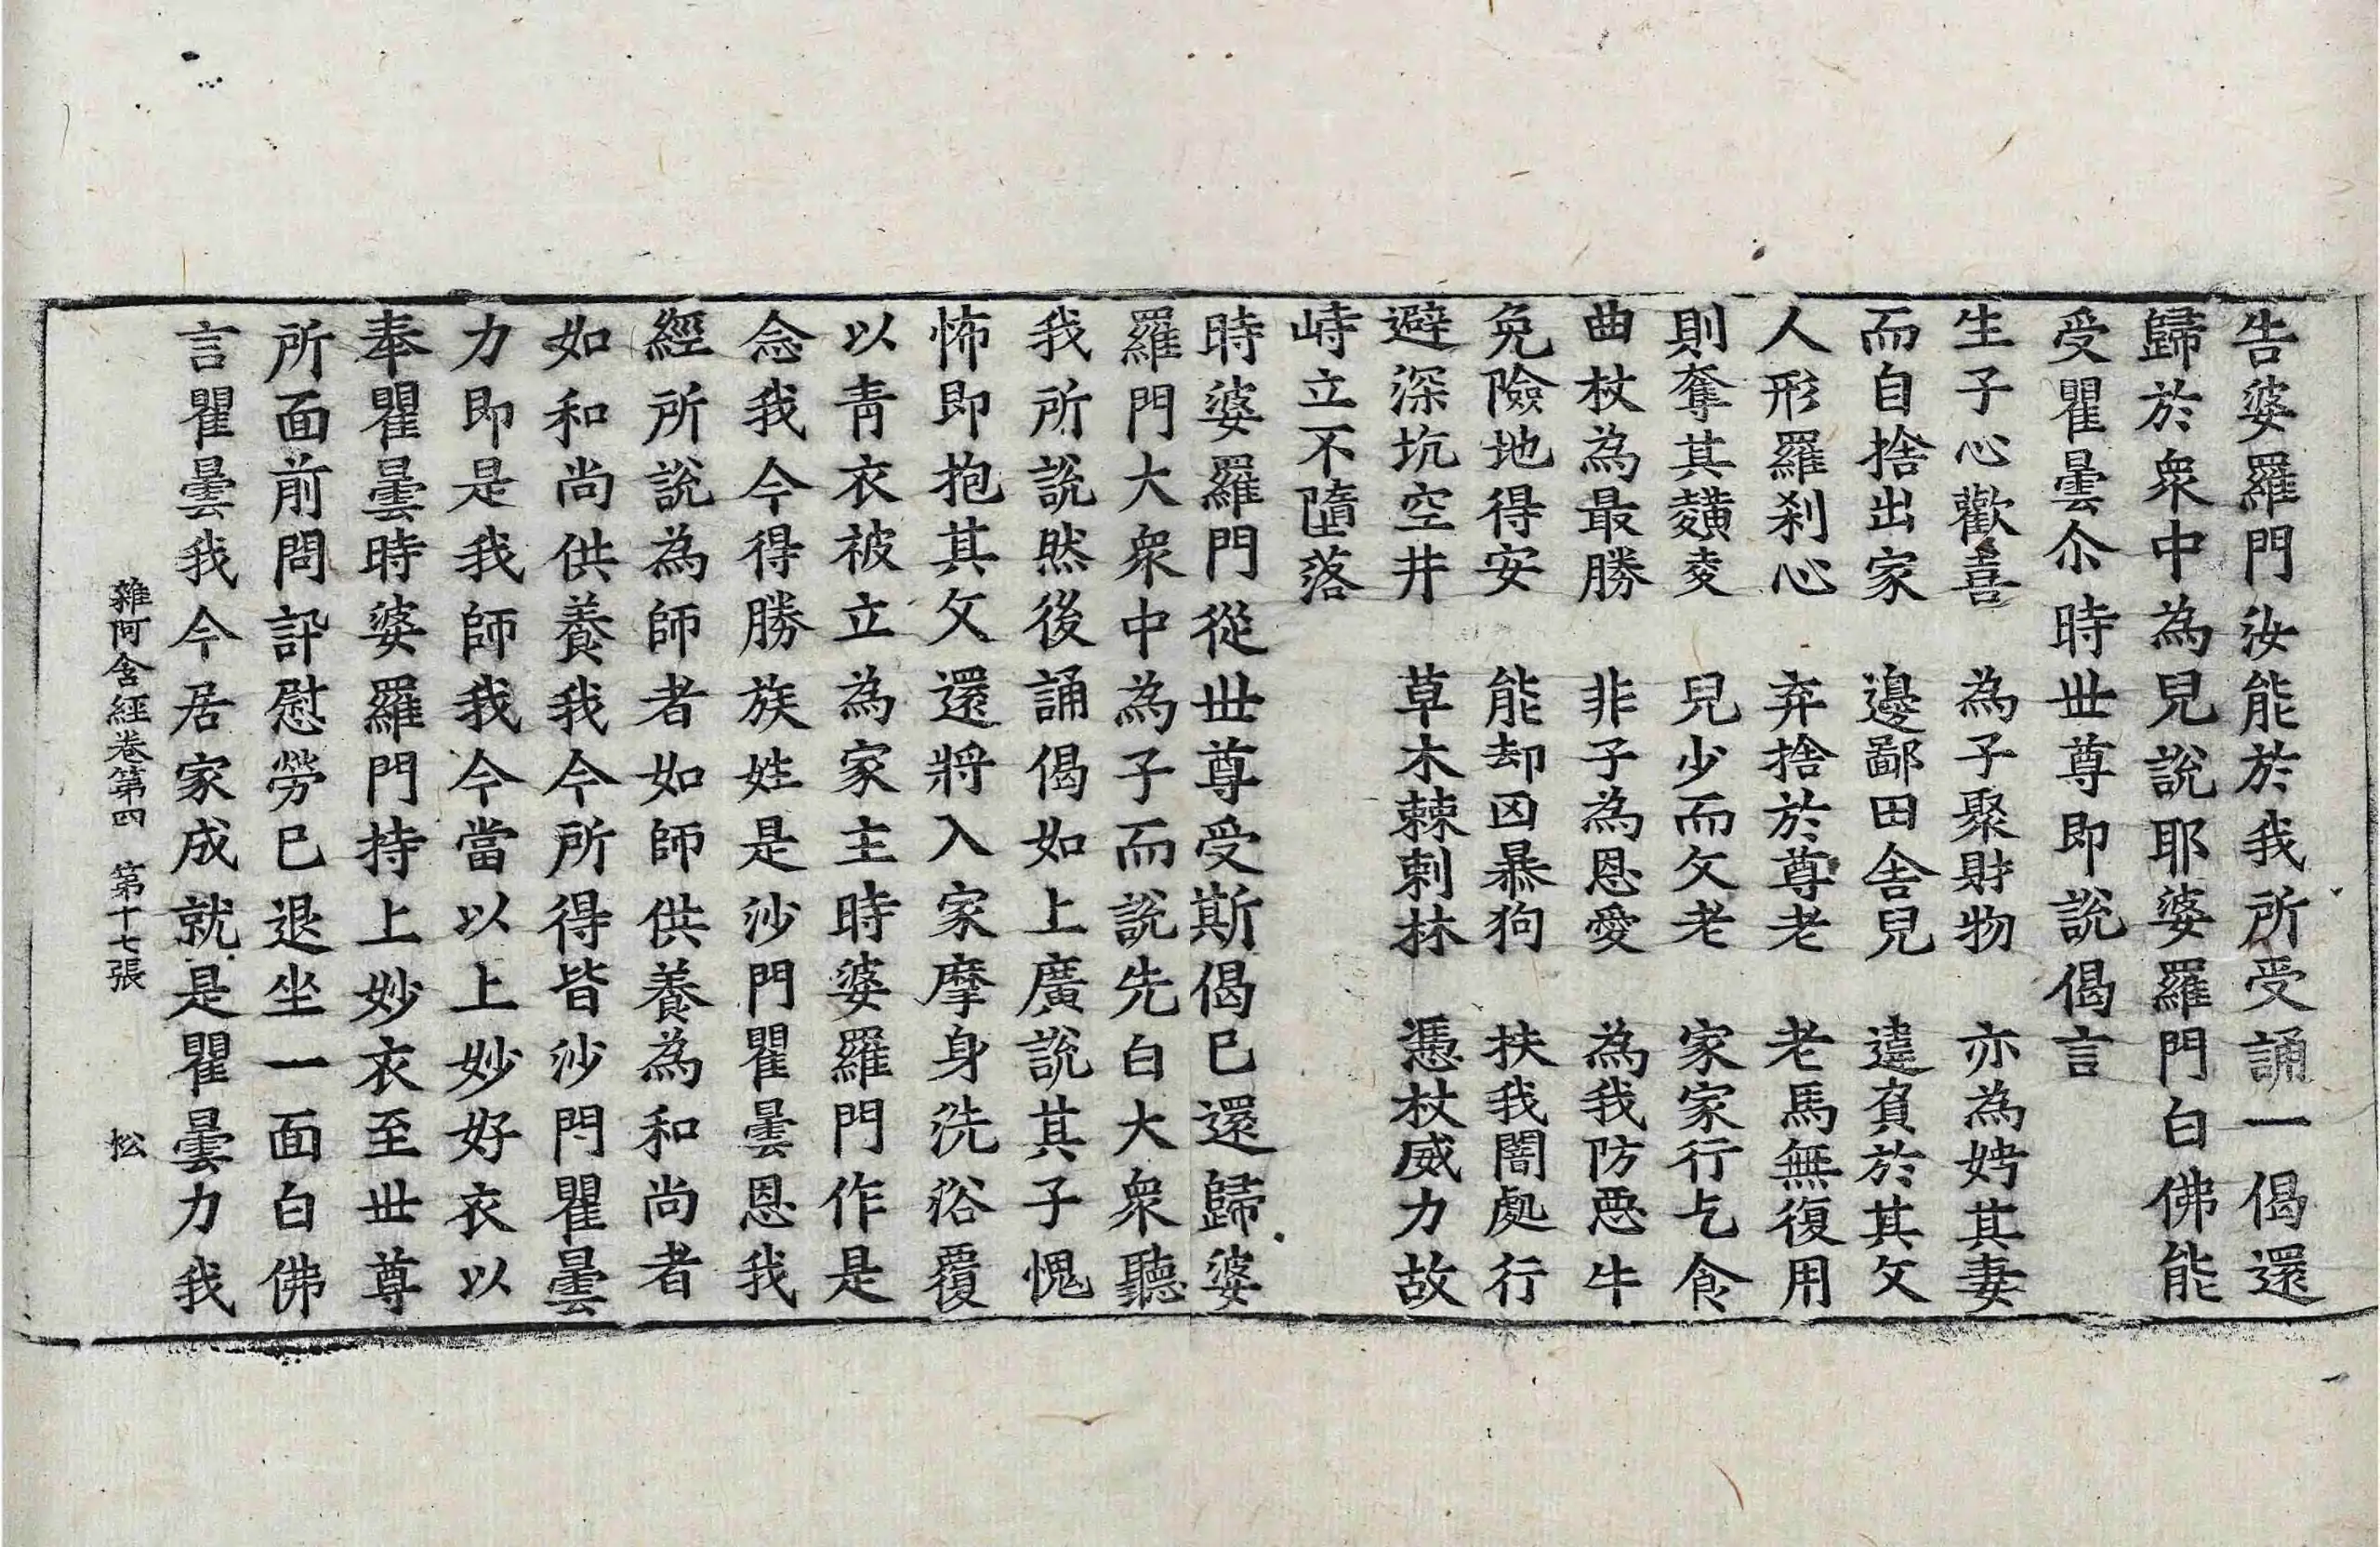 告婆羅門汝能於我所受誦一偈還
歸於衆中為兒說耶婆羅門白佛能
受瞿曇尒時世尊即說偈言
生子心歡喜　為子聚財物　亦為娉其妻
而自捨出家　邊鄙田舎兒　違負於其父
人形羅刹心　弃捨於尊老　老馬無復用
則奪其䵃麦　兒少而父老　家家行乞食
曲杖為最勝　非子為恩愛　為我防惡牛
免險地得安　能却凶暴狗　扶我闇處行
避深坑空井　草木棘刺林　憑杖威力故
峙立不墮落
時婆羅門從世尊受斯偈已還歸婆
羅門大衆中為子而說先白大衆聽
我所說然後誦偈如上廣說其子愧
怖即抱其父還將入家摩身洗浴覆
以青衣被立為家主時婆羅門作是
念我今得勝族姓是沙門瞿曇恩我
經所說為師者如師供養為和尚者
如和尚供養我今所得皆沙門瞿曇
力即是我師我今當以上妙好衣以
奉瞿曇時婆羅門持上妙衣至世尊
所面前問訊慰勞已退坐一面白佛
言瞿曇我今居家成就是瞿曇力我
雜阿含經卷第四　第十七張　松